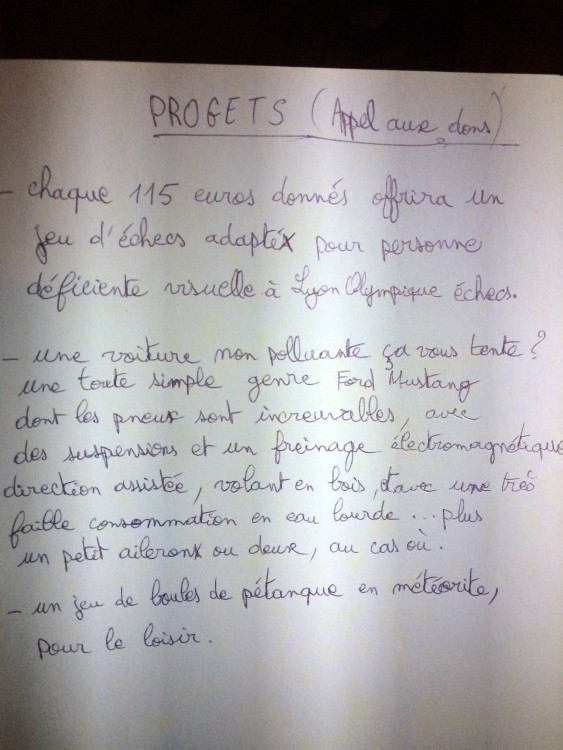 PROGETS (Appel aux dons)
- chaque 115 euros donnés offrira un
jeu d'échecs adapté pour personne
déficiente visuelle à Lyon Olympique échecs.
- une voiture non polluante ça vous tente ?
une toute simple genre Ford Mustang
dont les pneus sont increvables, avec
des suspensions et un freinage électromagnétique
direction assistée, volant en bois, et avec une très
faible consommation en eau lourde ... plus
un petit aileron ou deux, au cas où.
- un jeu de boules de pétanque en météorite,
pour le loisir.